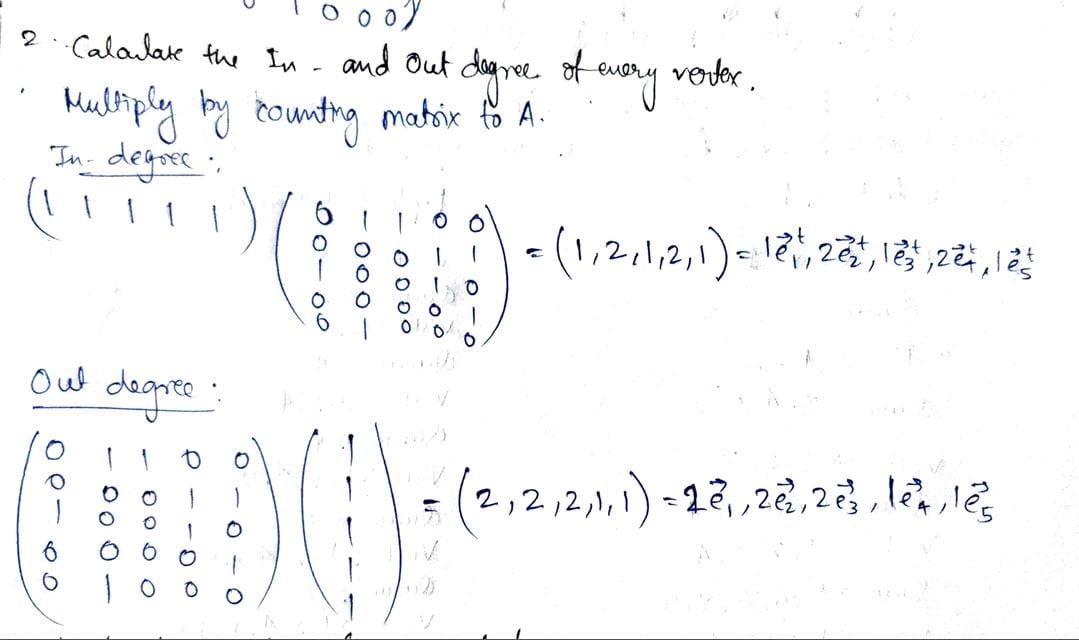 0 1 0 0 0)
2. Calculate the In - and Out degree of every vertex.
Multiply by counting matrix to A.
In- degree:
(1 1 1 1 1) (0 1 1 0 0
0 0 0 1 1
1 0 0 1 0
0 0 0 0 1
0 1 0 0 0) = (1,2,1,2,1) = 1e⃗₁ᵗ, 2e⃗₂ᵗ, 1e⃗₃ᵗ, 2e⃗₄ᵗ, 1e⃗₅ᵗ
Out degree:
(0 1 1 0 0
0 0 0 1 1
1 0 0 1 0
0 0 0 0 1
0 1 0 0 0) (1
1
1
1
1) = (2,2,2,1,1) = 2e⃗₁, 2e⃗₂, 2e⃗₃, 1e⃗₄, 1e⃗₅